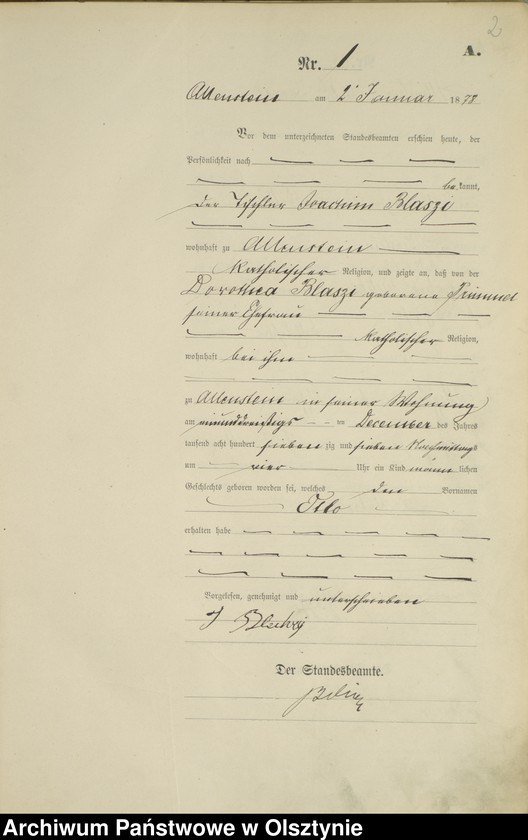 2
A.
Nr. 1
Allenstein am 2 Januar 1878
Vor dem unterzeichneten Standesbeamten erschien heute, der
Persönlichkeit nach
bekannt,
der Tischler Joachim Blaszi
wohnhaft zu Allenstein
Katholischer Religion, und zeigte an, daß von der
Dorothea Blaszi geborene
seiner Ehefrau
Katholischer Religion,
wohnhaft bei ihm
zu Allenstein in seiner Wohnung
am einunddreißigs ten December des Jahres
tausend acht hundert sieben zig und sieben Nachmittags
um vier Uhr ein Kind männlichen
Geschlechts geboren worden sei, welches den Vornamen
Otto
erhalten habe
Vorgelesen, genehmigt und unterschrieben
J
Der Standesbeamte.
Archiwum Państwowe w Olsztynie